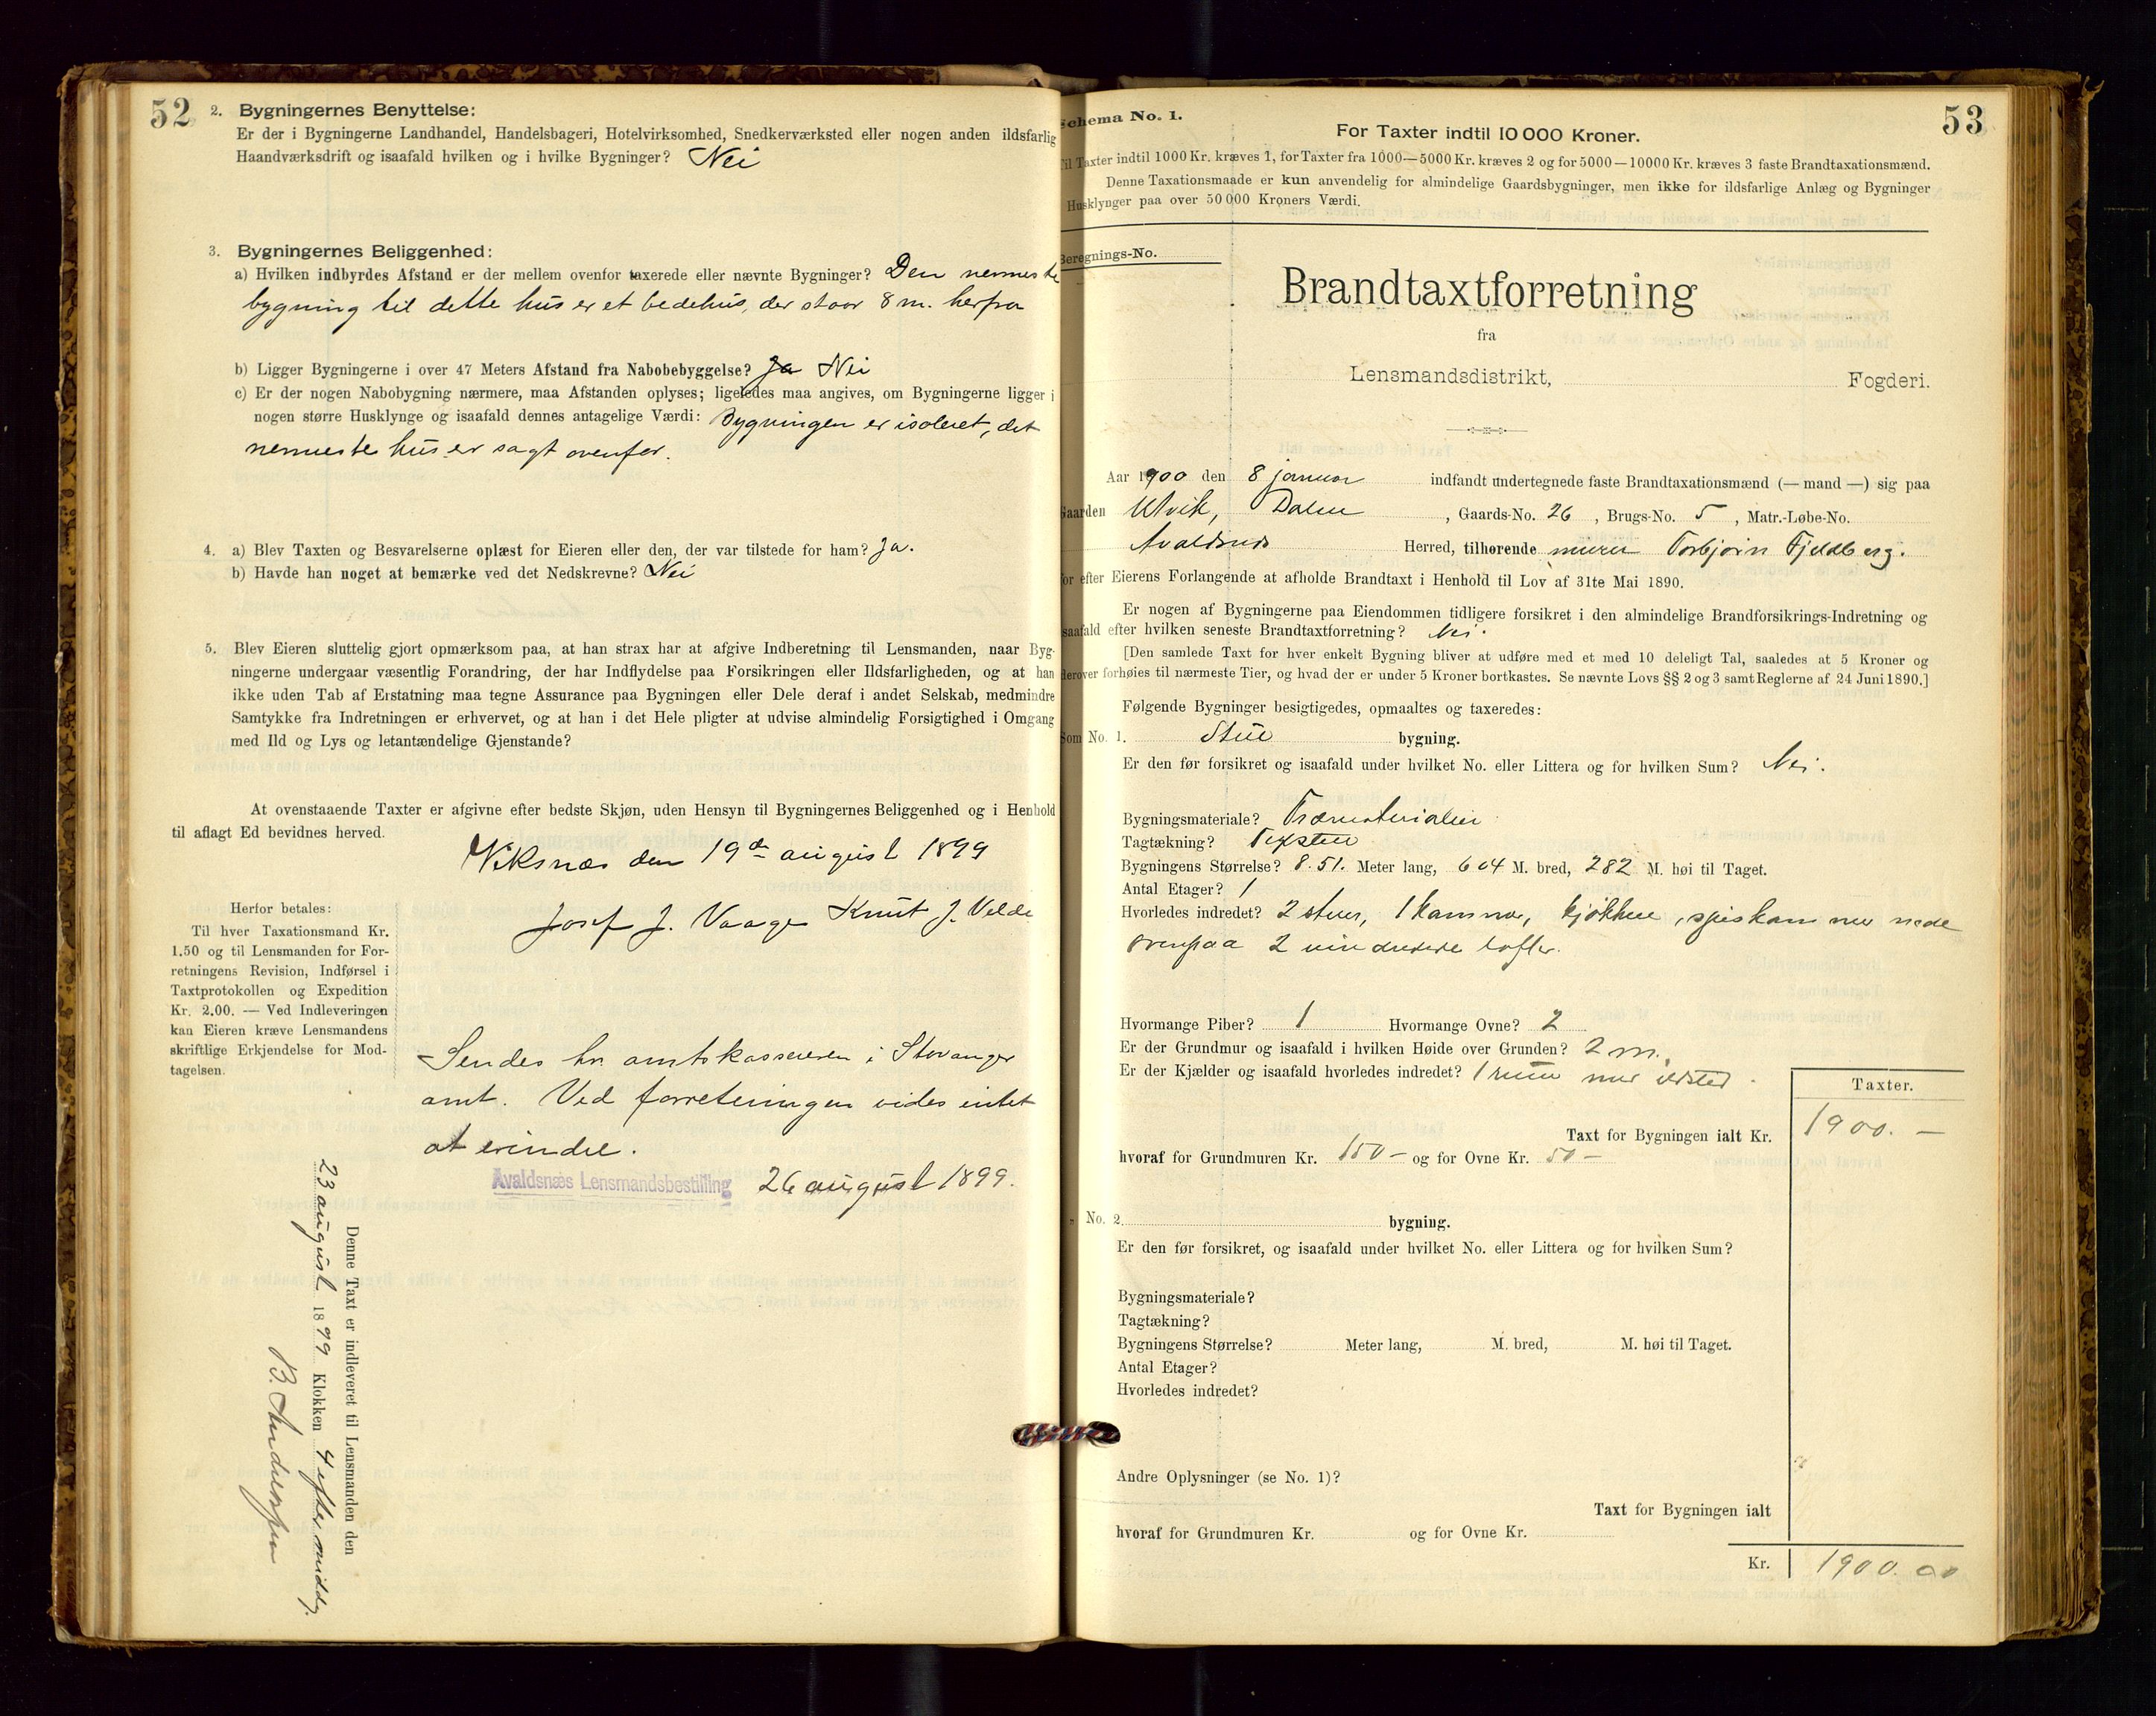 52
2. Bygningernes Benyttelse:
Er der i Bygningerne Landhandel, Handelsbageri, Hotelvirksomhed, Snedkerværksted eller nogen anden ildsfarlig
Haandværksdrift og isaafald hvilken og i hvilke Bygninger? Nei
3. Bygningernes Beliggenhed:
a) Hvilken indbyrdes Afstand er der mellem ovenfor taxerede eller nævnte Bygninger? Den nermeste
bygning til dette hus er et bedehus, der staar 8 m. herfra
b) Ligger Bygningerne i over 47 Meters Afstand fra Nabobebyggelse? Ja Nei
c) Er der nogen Nabobygning nærmere, maa Afstanden oplyses; ligeledes maa angives, om Bygningerne ligger i
nogen større Husklynge og isaafald dennes antagelige Værdi: Bygningen er isoleret, det
nermeste hus er sagt ovenfor.
4. a) Blev Taxten og Besvarelserne oplæst for Eieren eller den, der var tilstede for ham? Ja.
b) Havde han noget at bemærke ved det Nedskrevne? Nei
5. Blev Eieren sluttelig gjort opmærksom paa, at han strax har at afgive Indberetning til Lensmanden, naar Byg-
ningerne undergaar væsentlig Forandring, der har Indflydelse paa Forsikringen eller Ildsfarligheden, og at han
ikke uden Tab af Erstatning maa tegne Assurance paa Bygningen eller Dele deraf i andet Selskab, medmindre
Samtykke fra Indretningen er erhvervet, og at han i det Hele pligter at udvise almindelig Forsigtighed i Omgang
med Ild og Lys og letantændelige Gjenstande?
At ovenstaaende Taxter er afgivne efter bedste Skjøn, uden Hensyn til Bygningernes Beliggenhed og i Henhold
til aflagt Ed bevidnes herved.
Viksnæs den 19de august 1899
Josef J. Vaage Knut J. Velde
Herfor betales:
Til hver Taxationsmand Kr.
1.50 og til Lensmanden for For-
retningens Revision, Indførsel i
Taxtprotokollen og Expedition
Kr. 2.00. — Ved Indleveringen
kan Eieren kræve Lensmandens
skriftlige Erkjendelse for Mod-
tagelsen.
Sendes hr. amtskassereren i Stavanger
amt. Ved forretningen vides intet
at erindre.
Avaldsnæs Lensmandsbestilling 26 august 1899.
Denne Taxt er indleveret til Lensmanden den
23 august 1899 Klokken 4 eftermiddg.
B. Andersen
53
Schema No. 1.
For Taxter indtil 10 000 Kroner.
Til Taxter indtil 1000 Kr. kræves 1, for Taxter fra 1000—5000 Kr. kræves 2 og for 5000—10000 Kr. kræves 3 faste Brandtaxationsmænd.
Denne Taxationsmaade er kun anvendelig for almindelige Gaardsbygninger, men ikke for ildsfarlige Anlæg og Bygninger
Husklynger paa over 50 000 Kroners Værdi.
Beregnings-No.
Brandtaxtforretning
fra
Lensmandsdistrikt, Fogderi.
Aar 1900 den 8 januar indfandt undertegnede faste Brandtaxationsmænd (— mand —) sig paa
Gaarden Utvik, Dalen, Gaards-No. 26, Brugs-No. 5, Matr.-Løbe-No.
Avaldsnes Herred, tilhørende murer Torbjørn Fjeldberg.
for efter Eierens Forlangende at afholde Brandtaxt i Henhold til Lov af 31te Mai 1890.
Er nogen af Bygningerne paa Eiendommen tidligere forsikret i den almindelige Brandforsikrings-Indretning og
isaafald efter hvilken seneste Brandtaxtforretning? Nei.
[Den samlede Taxt for hver enkelt Bygning bliver at udføre med et med 10 deleligt Tal, saaledes at 5 Kroner og
derover forhøies til nærmeste Tier, og hvad der er under 5 Kroner bortkastes. Se nævnte Lovs §§ 2 og 3 samt Reglerne af 24 Juni 1890.]
Følgende Bygninger besigtigedes, opmaaltes og taxeredes:
Som No. 1. Stue bygning.
Er den før forsikret og isaafald under hvilket No. eller Littera og for hvilken Sum? Nei.
Bygningsmateriale? Træmaterialier
Tagtækning? Texsten
Bygningens Størrelse? 8.51. Meter lang, 604 M. bred, 282 M. høi til Taget.
Antal Etager? 1
Hvorledes indredet? 2 stuer, 1 kammer, kjøkken, spiskammer nede
ovenpaa 2 uindredede lofter.
Hvormange Piber? 1 Hvormange Ovne? 2
Er der Grundmur og isaafald i hvilken Høide over Grunden? 2 m.
Er der Kjælder og isaafald hvorledes indredet? 1 rum med ildsted.
Taxter.
Taxt for Bygningen ialt Kr. 1900. —
hvoraf for Grundmuren Kr. 150 – og for Ovne Kr. 50 –
" No. 2. bygning.
Er den før forsikret, og isaafald under hvilket No. eller Littera og for hvilken Sum?
Bygningsmateriale?
Tagtækning?
Bygningens Størrelse? Meter lang, M. bred, M. høi til Taget.
Antal Etager?
Hvorledes indredet?
Andre Oplysninger (se No. 1)?
Taxt for Bygningen ialt
hvoraf for Grundmuren Kr. og for Ovne Kr.
Kr. 1900.00